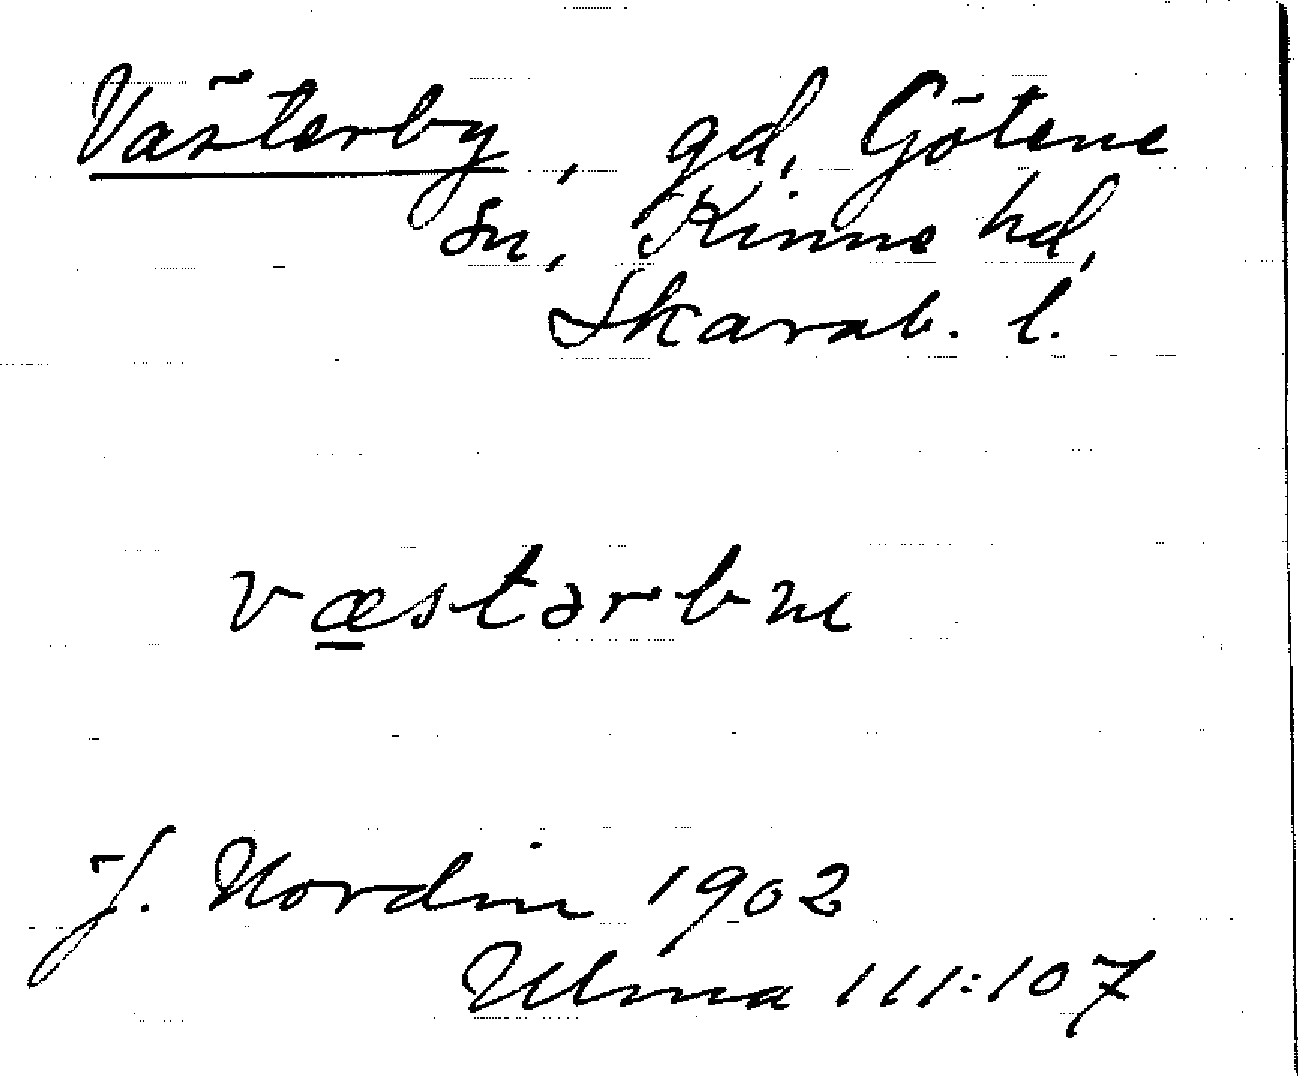 Västerby, gd, Götene
sn, Kinne hd,
Skarab. l.
væstərbɯ
J. Nordin 1902
Ulma 111:107